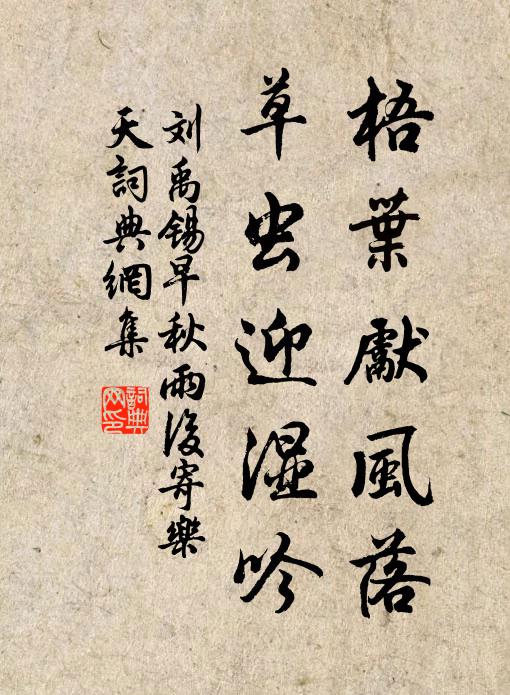 梧葉獻風落
草虫迎湿吟
刘禹锡早秋雨後寄樂
天詞典網集
詞典
网印